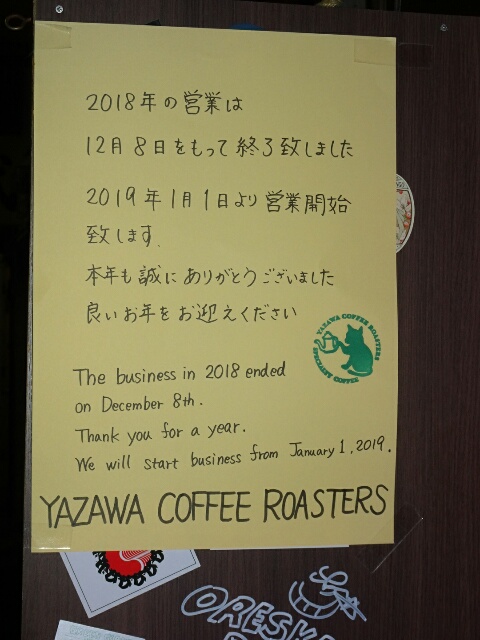 2018年の営業は
12月8日をもって終了致しました
2019年1月1日より営業開始
致します.
本年も誠にありがとうございました
良いお年をお迎えください
YAZAWA COFFEE ROASTERS
SPECIALTY COFFEE
The business in 2018 ended
on December 8th.
Thank you for a year.
We will start business from January 1, 2019.
YAZAWA COFFEE ROASTERS